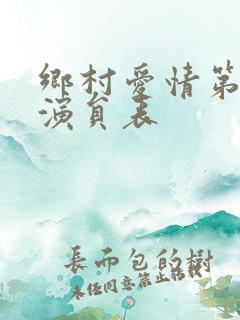 鄉村愛情第
演員表
長而包的樹
未任同意禁止轉載